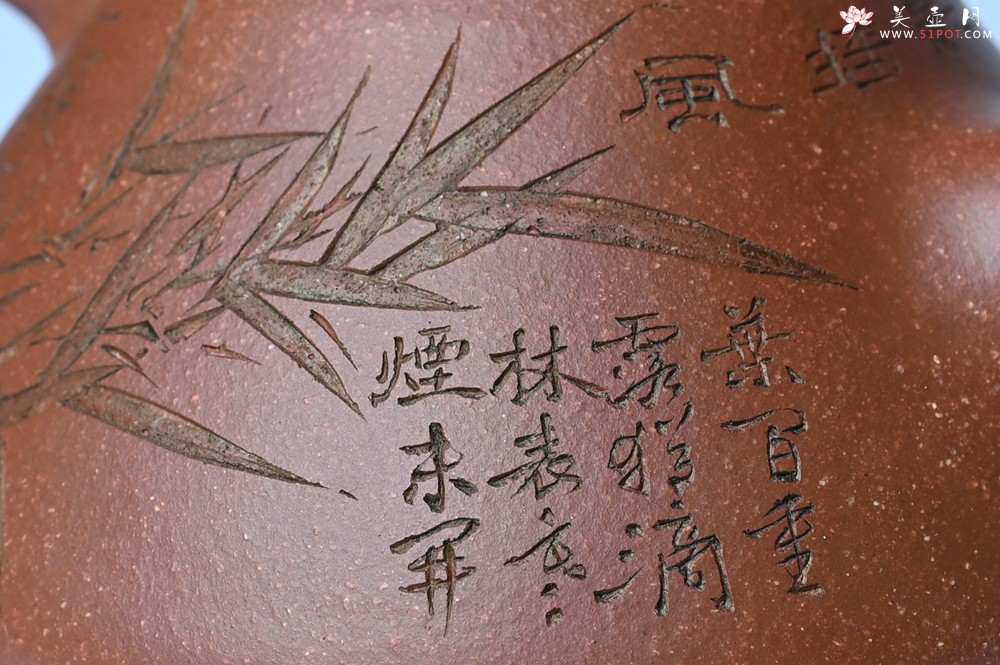 美壶网
WWW.51POT.COM
風
葉間垂
露猶滴
林表寒
煙未開